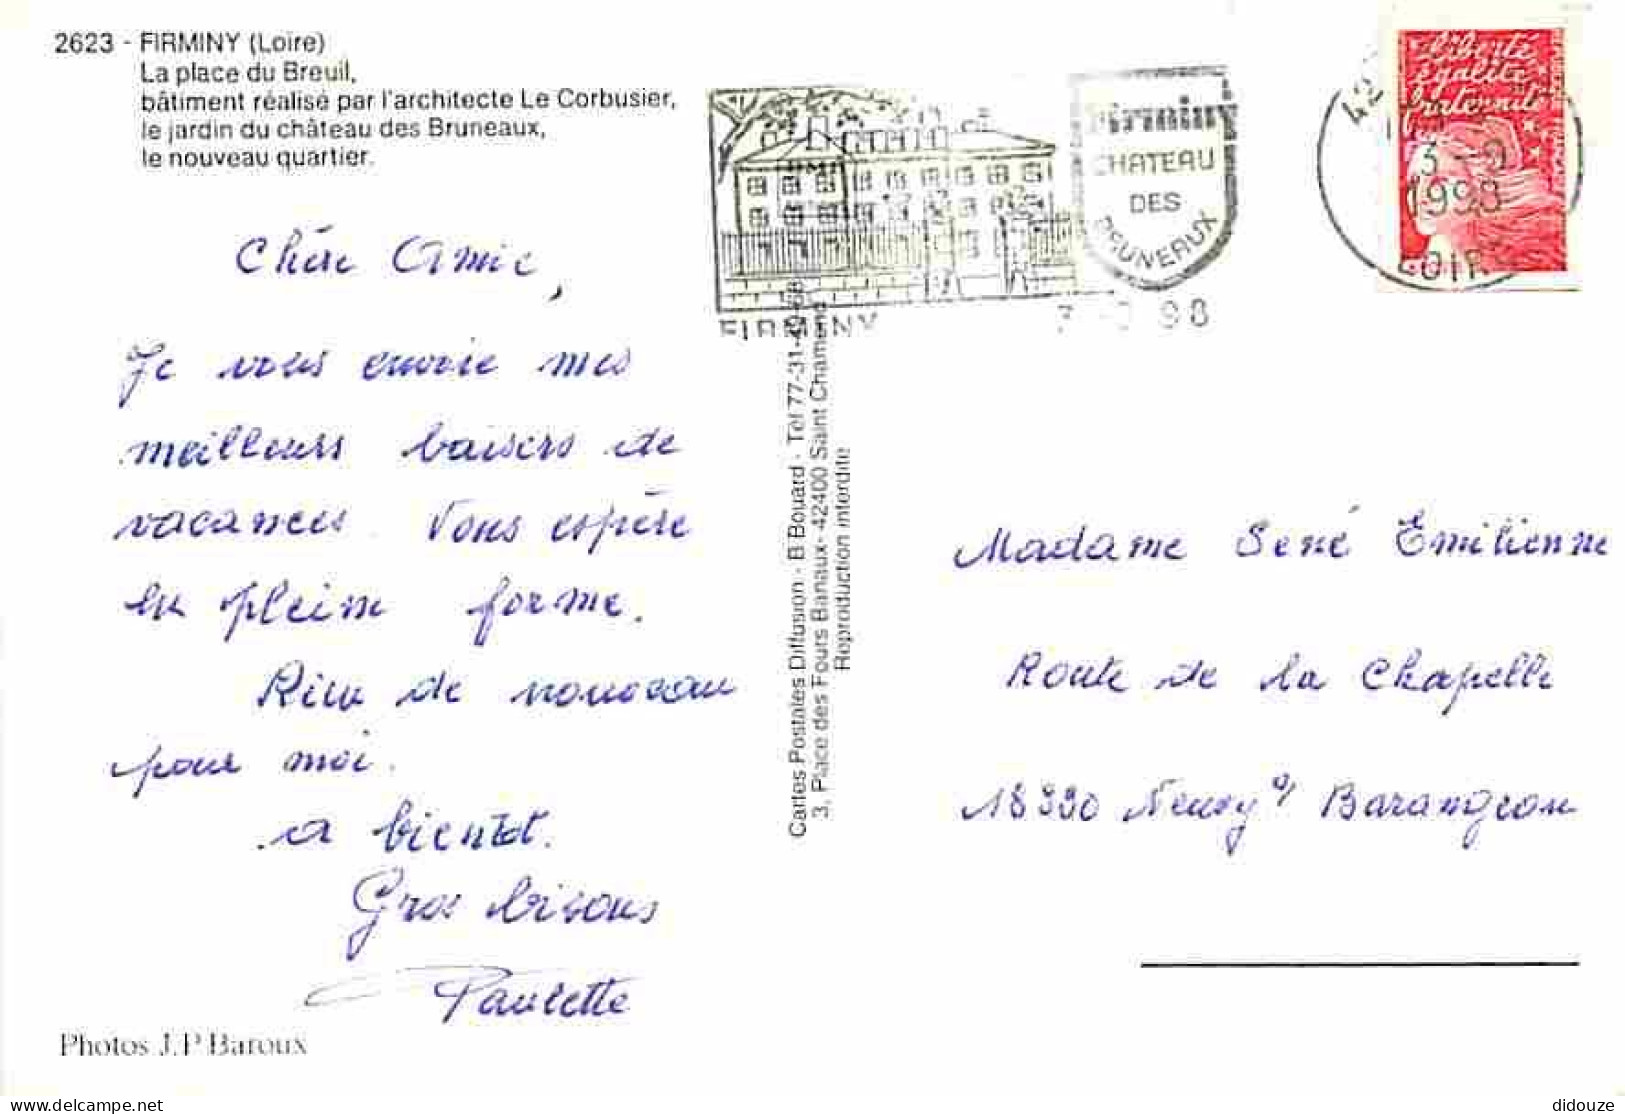 2623 - FIRMINY (Loire)
La place du Breuil,
bâtiment réalisé par l'architecte Le Corbusier,
le jardin du château des Bruneaux,
le nouveau quartier.
Chère Amie,
Je vous envoie mes
meilleurs baisers de
vacances. Vous espère
en pleine forme.
Rien de nouveau
pour moi.
a bientôt.
Gros bisous
Paulette
Photos J.P Baroux
Cartes Postales Diffusion - B Bouard - Tél 77-31-
3, Place des Fours Banaux - 42400 Saint Chamond
Reproduction interdite
Firminy
CHATEAU
DES
BRUNEAUX
FIRMINY
98
Liberté
égalité
fraternité
42
3 - 9
1998
LOIRE
Madame Sené Emilienne
Route de la Chapelle
18330 Neuvy s/ Barangeon
didouze